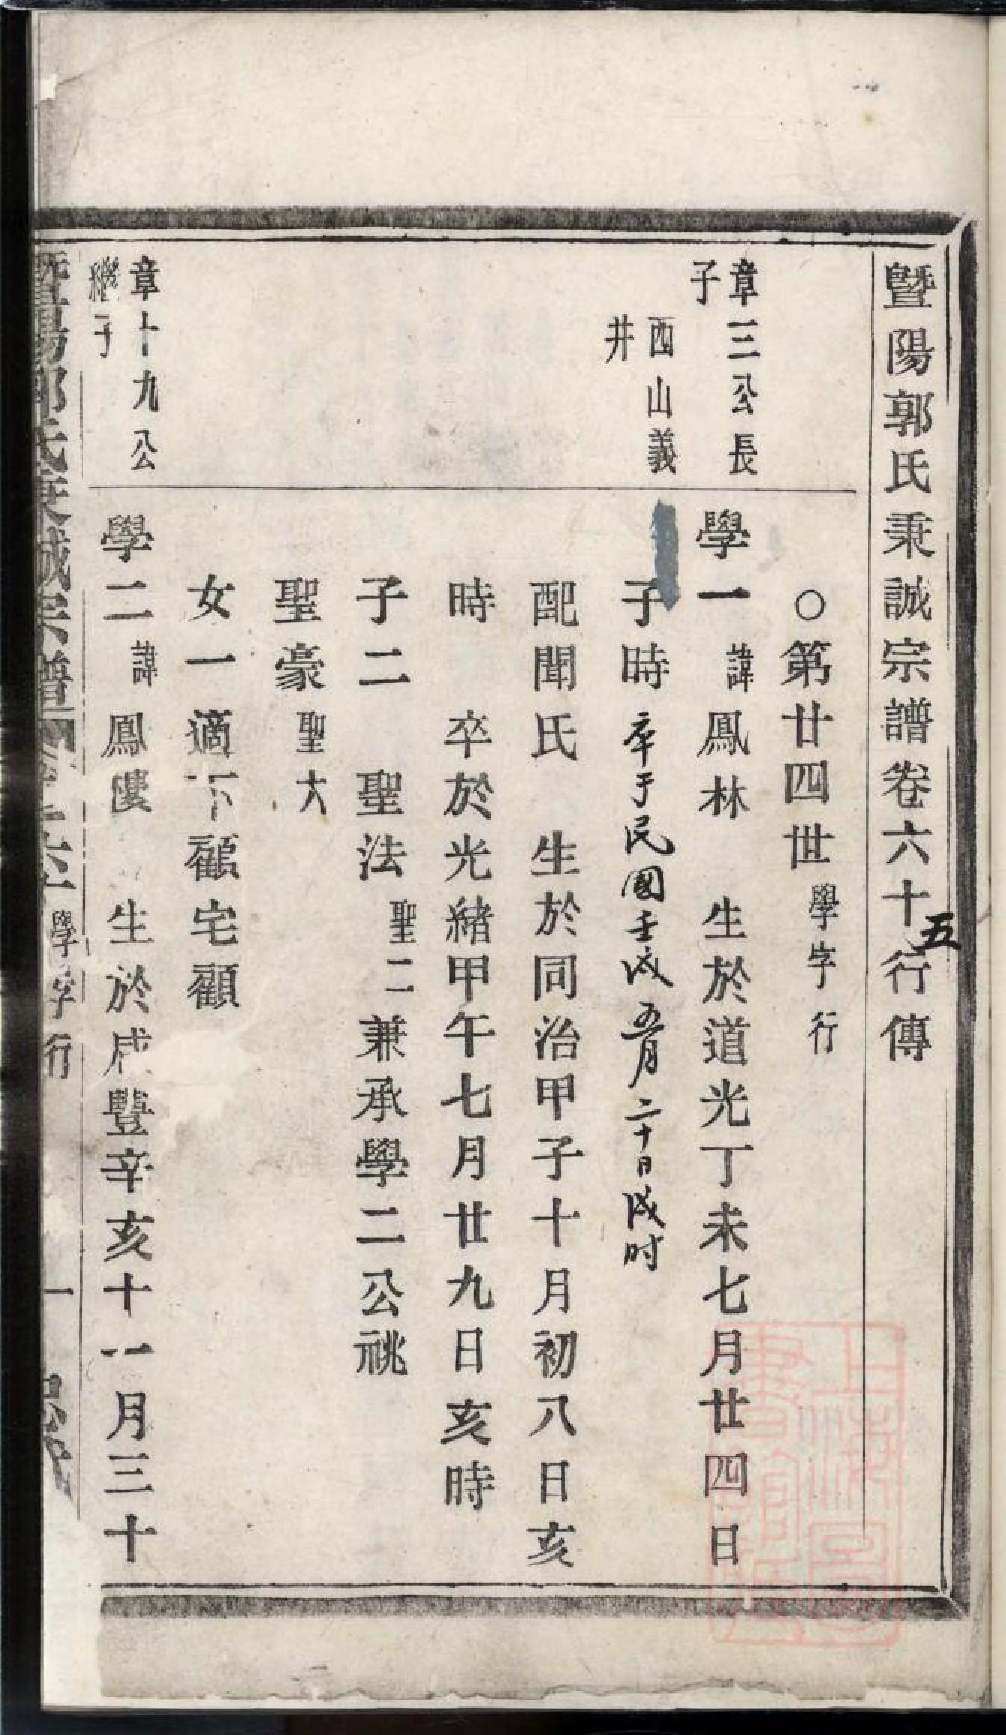 暨陽郭氏秉誠宗譜卷六十五行傳
○第廿四世 學字行
章三公長
子
學一 諱 鳳林 生於道光丁未七月廿四日
西山義
井
子時 卒于民國壬戌五月二十日戌时
配聞氏 生於同治甲子十月初八日亥
時 卒於光緒甲午七月廿九日亥時
子二 聖法 聖二 兼承學二公祧
聖豪 聖大
女一適下顧宅顧
章十九公
繼子
學二 諱 鳳 生於咸豐辛亥十一月三十
暨陽郭氏秉誠宗譜 學字行 一